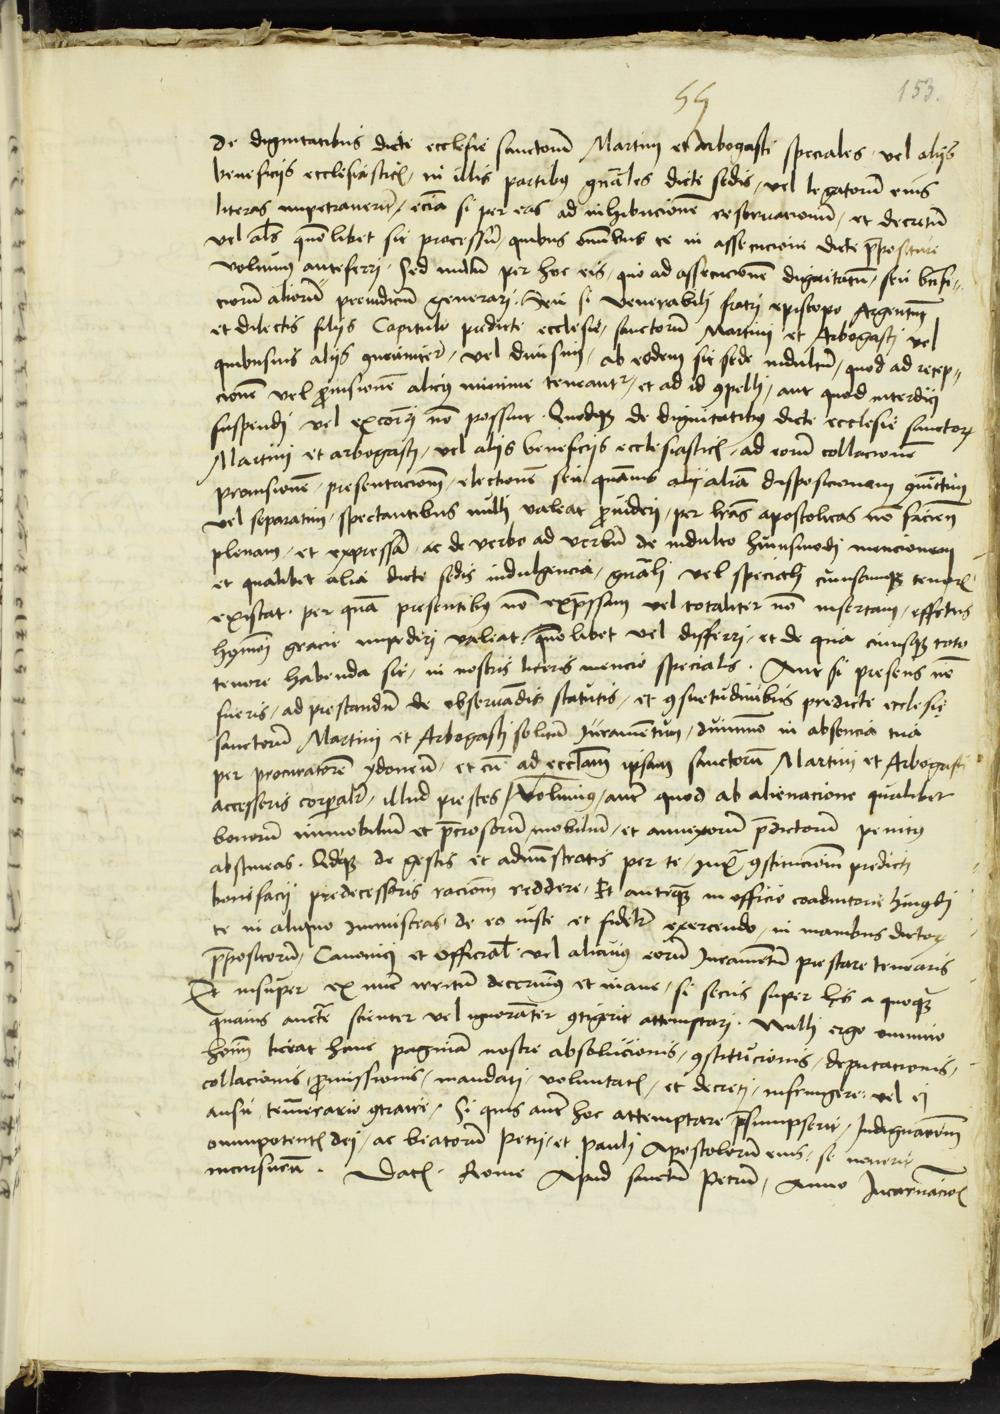 55
153.
de dignitatibus dicte ecclesie sanctorū Martini et Arbogasti speciales vel alijs
beneficijs ecclesiasticꝭ in illis partibus gn̄ales dicte sedis, vel legatorū eius
literas impetrauerīt, eciā si per eas ad inhibicionē reseruacionū, et decretū
vel al̄s quōlibet sit processū, quibus oīnibus te in assecucione dicte p̄positure
volumus anteferri, Sed nullū per hoc eis, quo ad assecucionē dignitatū, seu bn̄fi-
ciorū aliorū preiudiciū generari. Seu si Venerabili fratri episcopo Argentiñ
et dilectis filijs Capitulo predicte ecclesie, sanctorū Martini et Arbogasti vel
quibusuis alijs ꝯmuniter, vel diuisim, ab eodem sit sede indultū, quod ad recep-
cionē vel ꝓuisionē alicuiꝰ minime teneantʳ, et ad id ꝯpelli, aut quod interdici
suspendi vel excōicari nō possint. Quodqꝫ de dignitatibꝰ dicte ecclesie sanctoꝝ
Martini et arbogasti, vel alijs beneficijs ecclesiasticꝭ, ad eorū collacionē
prouisionē, presentacionē, electionē seu quāuis aliā disposicionem ꝯiūctim
vel separatim, spectantibus nulli valeat ꝓuideri, per lrās apostolicas nō facieñ
plenam, et expressā, ac de verbo ad verbū de indulto huiusmodi mencionem
et qualibet alia dicte sedis indulgencia, gn̄ali vel speciali cuiuscūqꝫ tenorꝭ
existat. per quā presentibus nō exp̄ssam vel totaliter nō insertam, effectus
hm̄oi gracie impediri valeat quōlibet vel differri, et de qua cuiusqꝫ toto
tenore habenda sit, in nostris literis mencio specialis. Aut si presens nō
fueris, ad prestandū de obseruādis statutis, et ꝯsuetudinibus predicte ecclesie
sanctorū Martini et Arbogasti solitū Iuramentum, dūmmo in absencia tua
per procuratorē ydoneū, et cū ad eccl̄am ipsam sanctorū Martini et Arbogasti
accesseris corꝑalr̄, illud prestes, Volumus, aut̄ quod ab alienacione qualibet
bonorū immobiliū et p̄ciosorū mobiliū, et annexorū p̄dictorū penitus
abstineas. Adqꝫ de gestis et administratis per te, iuxᵃ ꝯstitucionē predicti
bonifacij predecessoris racionē reddere, Et anteqꝫ in officio coadiutorie huiꝰmōi
te in aliquo immisceas de eo iuste et fidelr̄ exercendo, in manibus dictoꝝ
p̄positorū, Canonici et Officialꝭ vel alicuius eorū Iuramentū prestare tenearis
Et insuper ex nunc irritū decernimꝰ et inane, si secus super hijs a quoqᵃ
quauis auctᵉ scienter vel ignorāter ꝯtigerit attemptari. Nulli ergo omnino
hoīm liceat hanc paginā nostre absolucionis, ꝯstitucionis, deputacionis,
collacionis, ꝓmissionis, mandati, voluntatꝭ, et decreti, infringere, vel ei
ausu temerario ꝯtraire, Si quis aut̄ hoc attemptare p̄sumpserit, Indignacionē
omnipotentꝭ dei, ac beatorū Petri, et Pauli Apostolorū eius, se nouerit
incursurū. Datꝭ Rome Apud sanctū Petrū, Anno Incarnacioꝭ